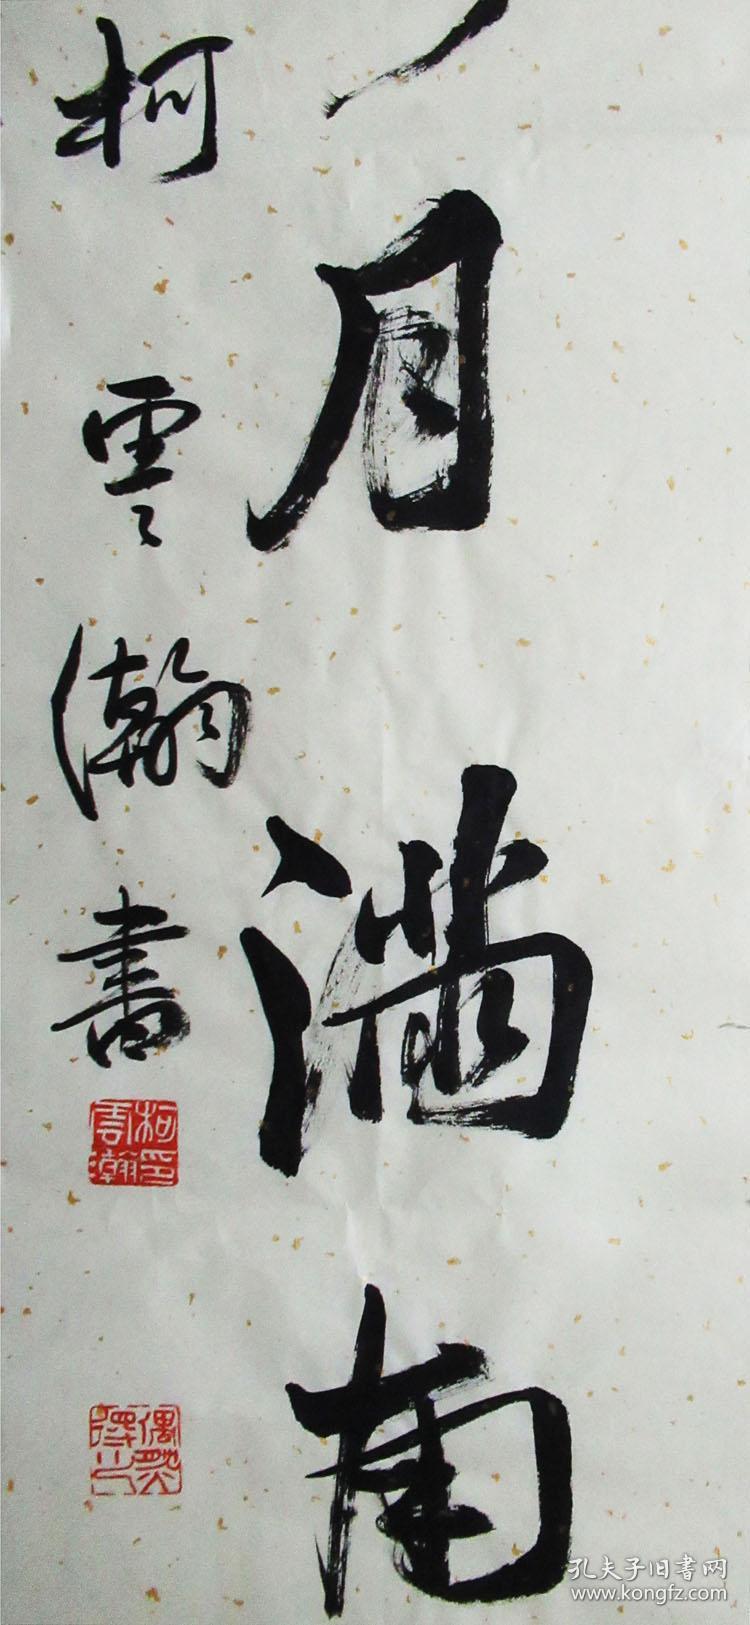 月满南
柯云瀚書
柯雲瀚印
孔夫子旧書网
www.kongfz.com